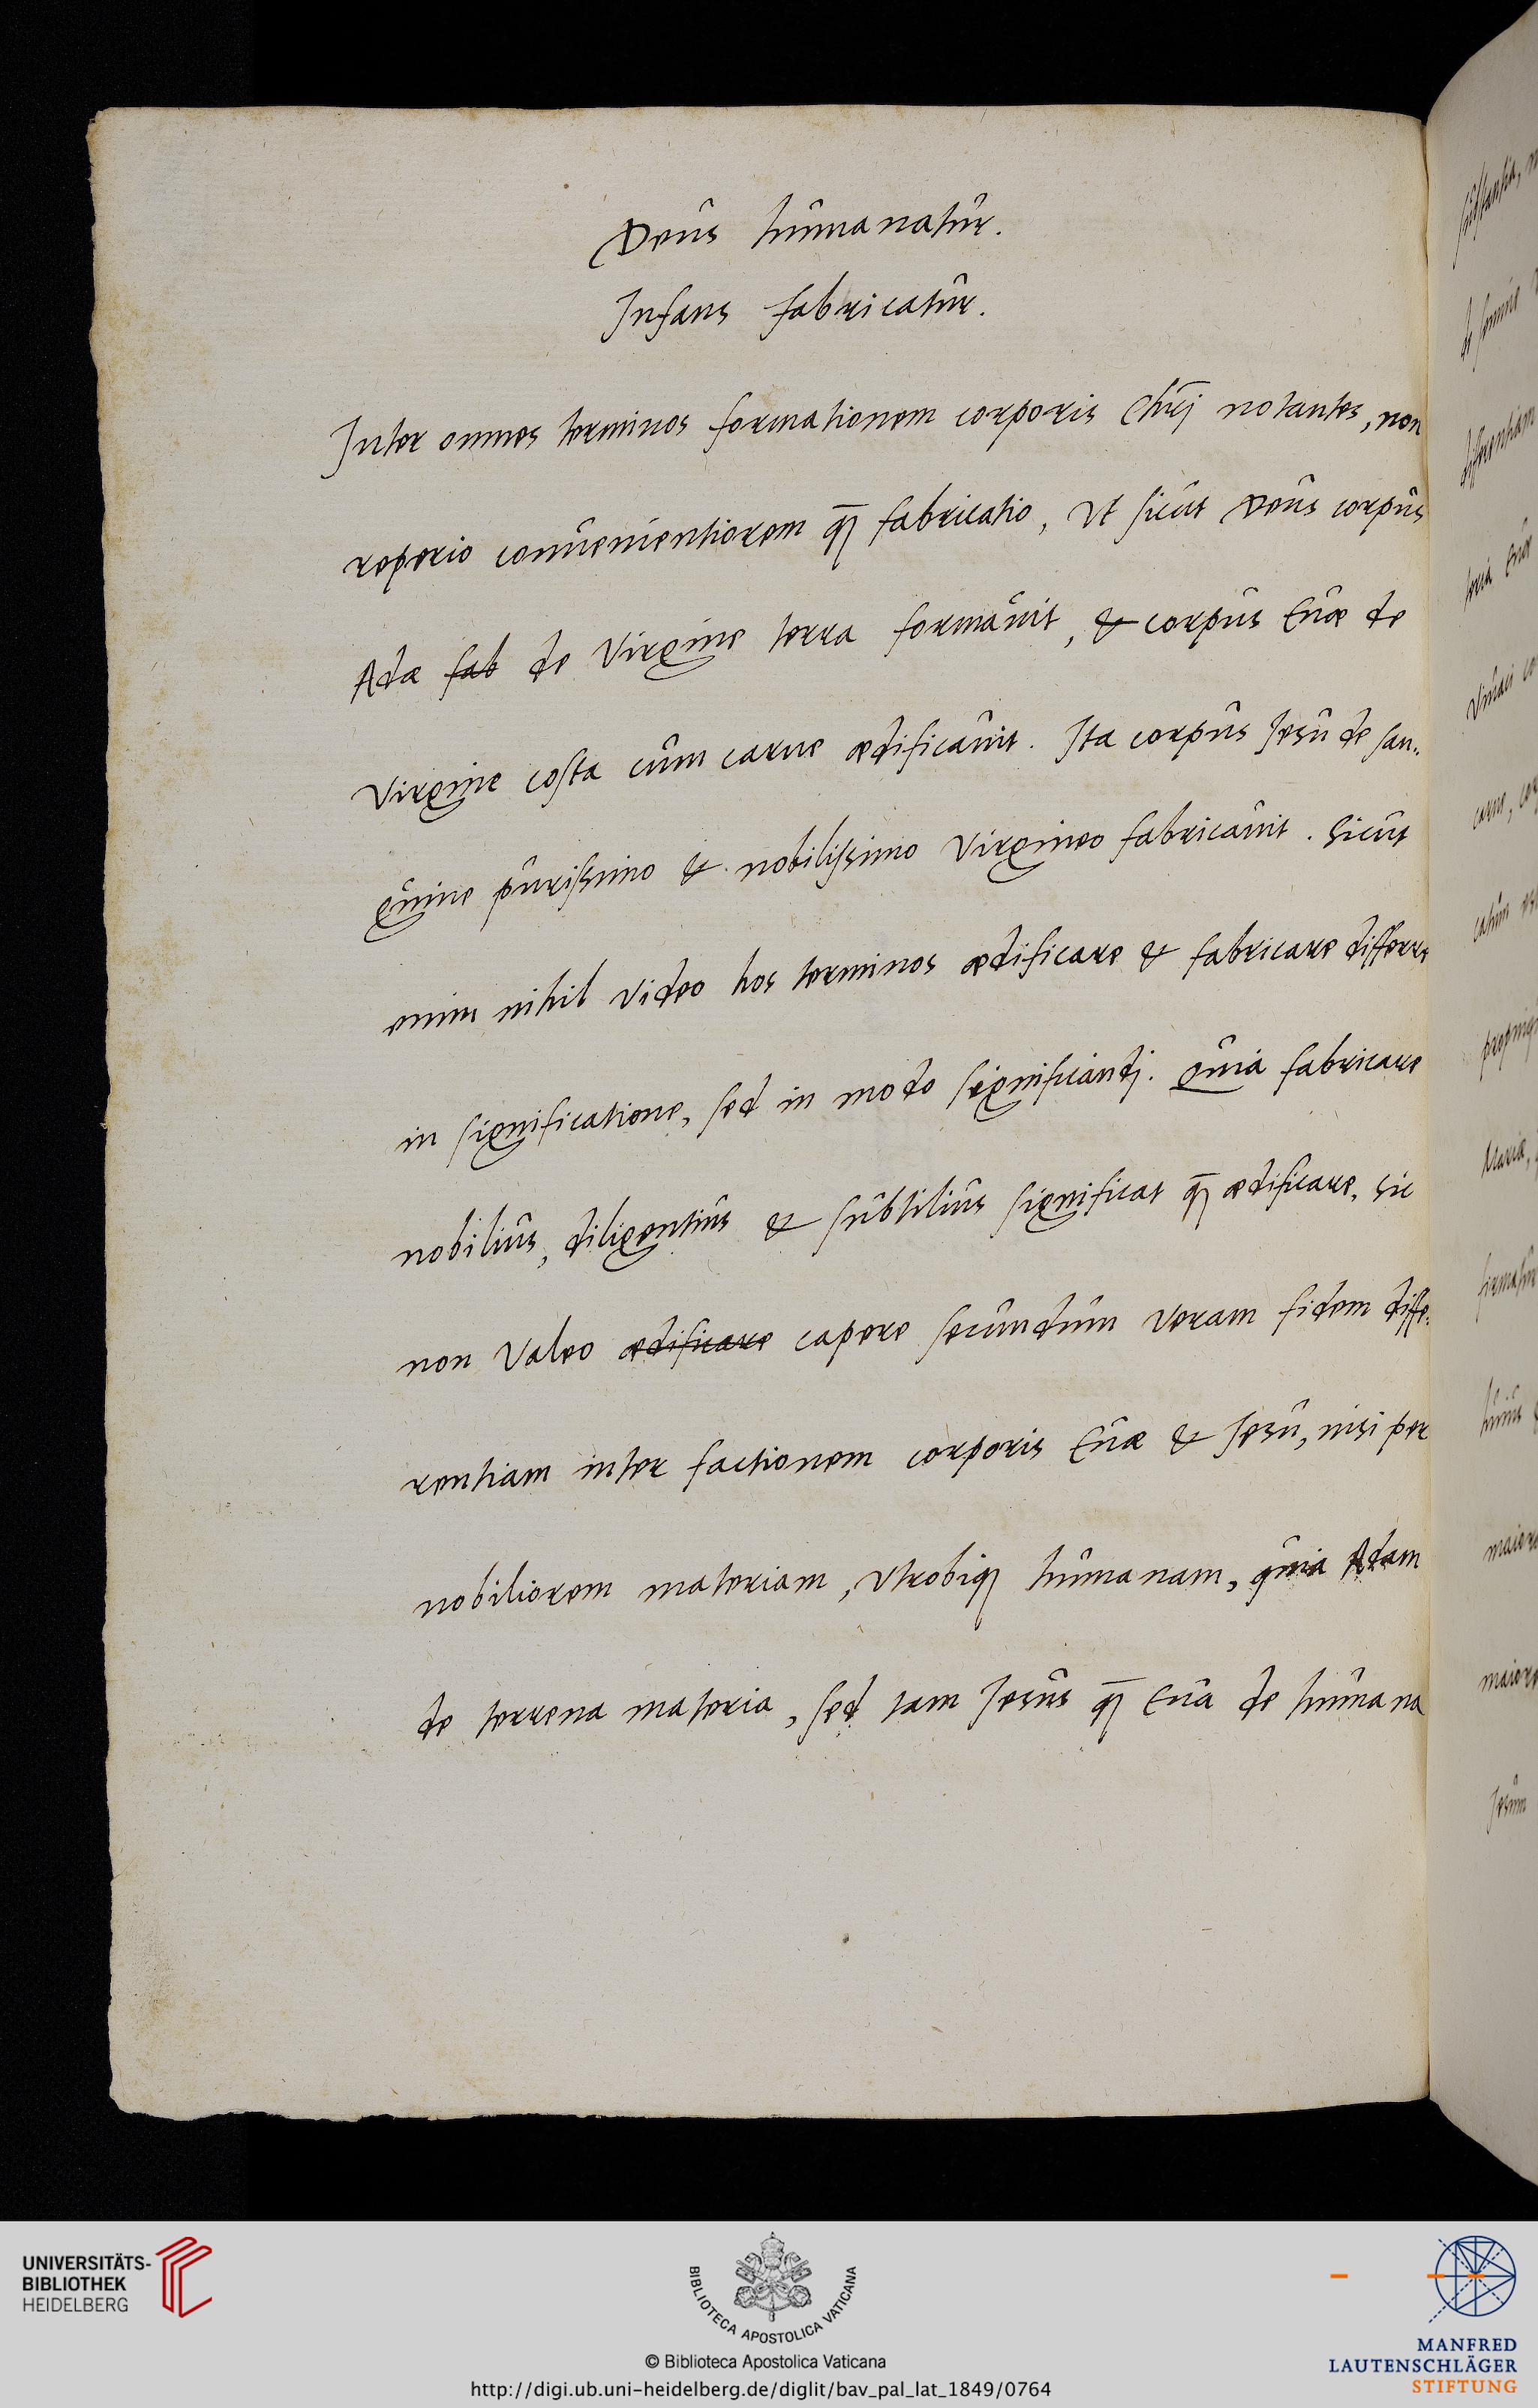 Deus humanatur.
Infans fabricatur.
Inter omnes terminos formationem corporis Chr̄j notantes, non
reperio conuenientiorem q̄ȝ fabricatio, Vt sicut Deus corpus
Adæ fab de Virgine terra formauit, & corpus Euæ de
Virgine costa cum carne ædificauit. Ita corpus Jesu de san-
guine purissimo & nobilissimo Virgineo fabricauit. Sicut
enim nihil video hos terminos ædificare & fabricare differre
in significatione, sed in modo significandj. Quia fabricare
nobilius, diligentius & subtilius significat q̄ȝ ædificare, sic
non Valeo ædificare capere secundum veram fidem diffe-
rentiam inter factionem corporis Euæ & Jesu, nisi per
nobiliorem materiam, Vtrobiqȝ humanam, quia Adam
de terrena materia, sed tam Jesus q̄ȝ Eua de humana
substantia,
de semine
differentiam
Mariæ,
Jesum
UNIVERSITÄTS-
BIBLIOTHEK
HEIDELBERG
BIBLIOTECA APOSTOLICA VATICANA
© Biblioteca Apostolica Vaticana
http://digi.ub.uni-heidelberg.de/diglit/bav_pal_lat_1849/0764
MANFRED
LAUTENSCHLÄGER
STIFTUNG